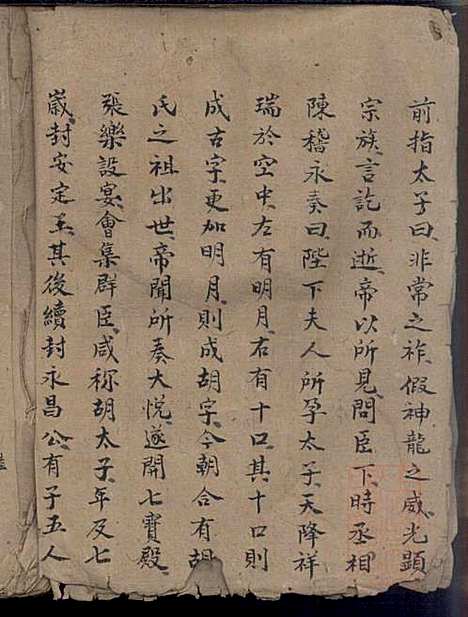 前指太子曰非常之祚假神龍之威光顕
宗族言訖而逝帝以所見問臣下時丞相
陳稽永奏曰陛下夫人所孕太子天降祥
瑞於空中左有明月右有十口其十口則
成古字更加明月則成胡字今朝合有胡
氏之祖出世帝聞所奏大悦遂開七寶殿
張樂設宴會集群臣咸称胡太子年及七
歲封安定王其後續封永昌公有子五人